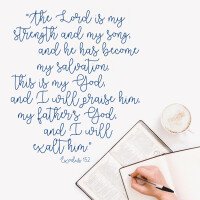 "The Lord is my
strength and my song,
and he has become
my salvation.
This is my God,
and I will praise him,
my father's God,
and I will
exalt him"
Exodus 15:2